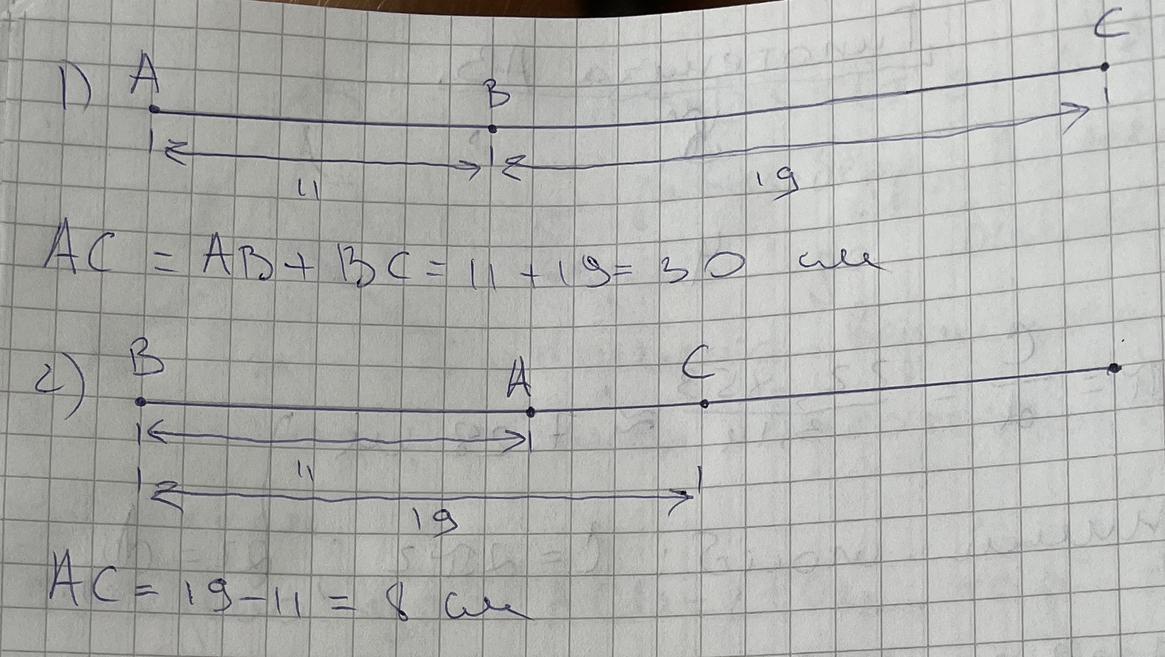 1) A B C
11 19
AC = AB + BC = 11 + 19 = 30 см
2) B A C
11
19
AC = 19 - 11 = 8 см